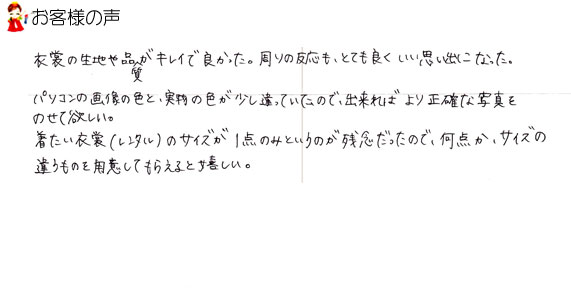 お客様の声
衣裳の生地や品質がキレイで良かった。周りの反応も、とても良くいい思い出になった。
パソコンの画像の色と、実物の色が少し違っていたので、出来ればより正確な写真を
のせて欲しい。
着たい衣裳(レンタル)のサイズが1点のみというのが残念だったので、何点か、サイズの
違うものを用意してもらえると嬉しい。